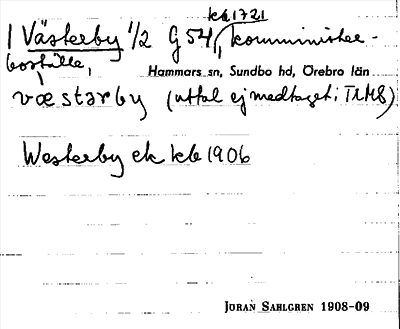 kb 1721
1 Västerby 1/2 G 54, komminister-
boställe,
Hammars sn, Sundbo hd, Örebro län
væstərby (uttal ej medtaget i TRMS)
Westerby ek kb 1906
JORAN SAHLGREN 1908-09